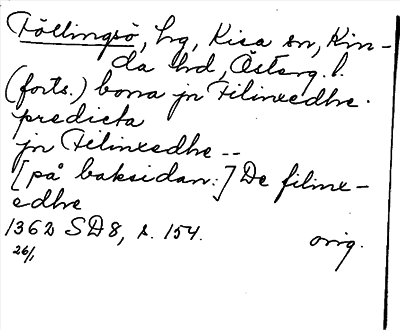 Föllingsö, hg, Kisa sn, Kin-
da hd, Österg. l.
(forts.) bona jn Filinxedhe.
predicta
jn Filinxedhe --
[på baksidan:] De filinx-
edhe
1362 SD8, s. 154. orig.
26/1